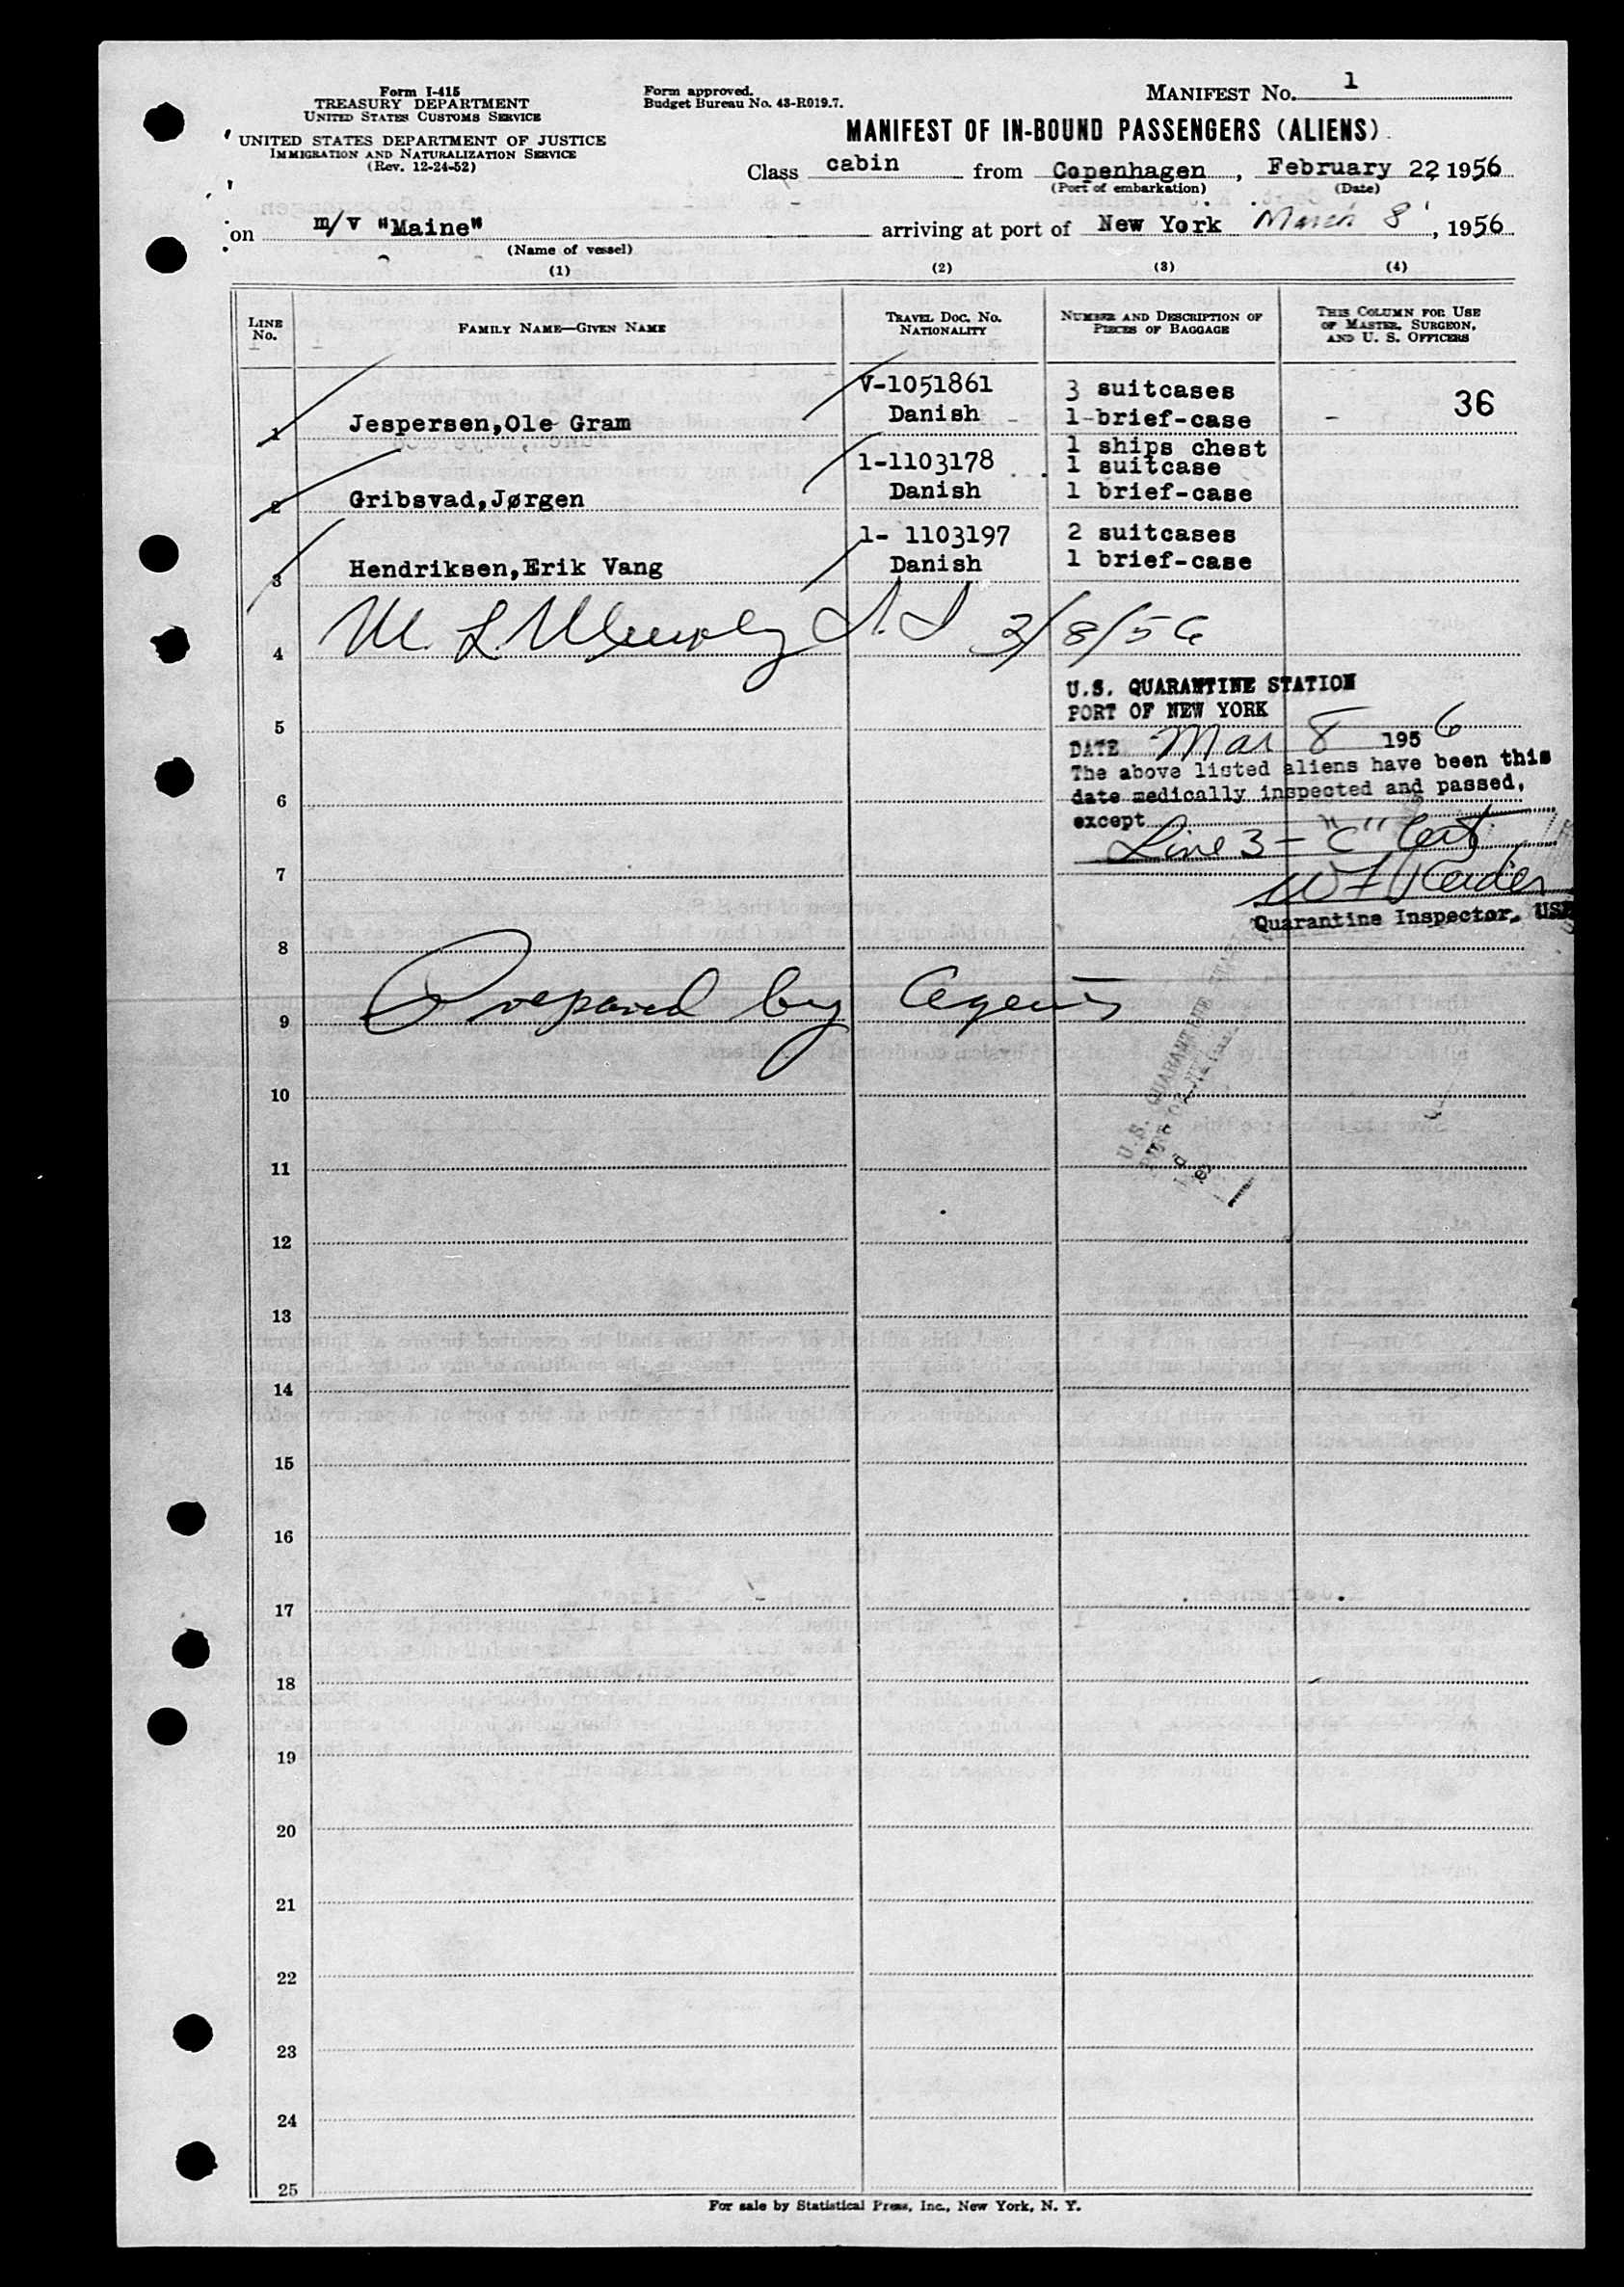 Form I-415
TREASURY DEPARTMENT
UNITED STATES CUSTOMS SERVICE
UNITED STATES DEPARTMENT OF JUSTICE
IMMIGRATION AND NATURALIZATION SERVICE
(Rev. 12-24-52)
Form approved.
Budget Bureau No. 43-R019.7.
MANIFEST No. 1
MANIFEST OF IN-BOUND PASSENGERS (ALIENS)
Class cabin from Copenhagen, February 22 1956
(Port of embarkation) (Date)
on m/v "Maine" arriving at port of New York March 8, 1956
(Name of vessel)
(1) (2) (3) (4)
LINE No. FAMILY NAME—GIVEN NAME TRAVEL DOC. NO. NATIONALITY NUMBER AND DESCRIPTION OF PIECES OF BAGGAGE THIS COLUMN FOR USE OF MASTER, SURGEON, AND U. S. OFFICERS
V-1051861 3 suitcases 36
1 Jespersen,Ole Gram Danish 1-brief-case
1 ships chest
1-1103178 1 suitcase
2 Gribsvad,Jørgen Danish 1 brief-case
1- 1103197 2 suitcases
3 Hendriksen,Erik Vang Danish 1 brief-case
4 M. L. 3/8/56
U.S. QUARANTINE STATION
5 PORT OF NEW YORK
DATE Mar 8 1956
The above listed aliens have been this
6 date medically inspected and passed,
except
Line 3 - "C" Cert
7
Quarantine Inspector,
8
9 Prepared by Agents
10
11
12
13
14
15
16
17
18
19
20
21
22
23
24
25
For sale by Statistical Press, Inc., New York, N. Y.